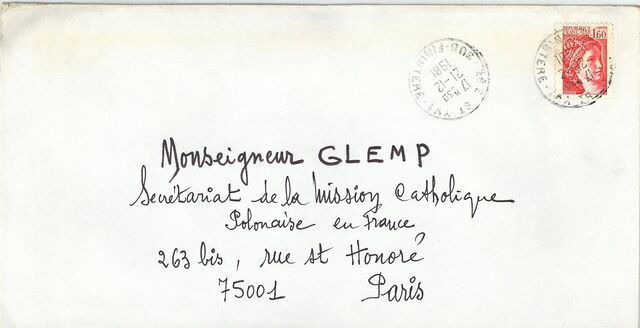 1.60
17 H30
21-12
1981
SUD-FINISTERE
Monseigneur GLEMP
Secrétariat de la Mission Catholique
Polonaise en France
263 bis, rue St Honoré
75001 Paris